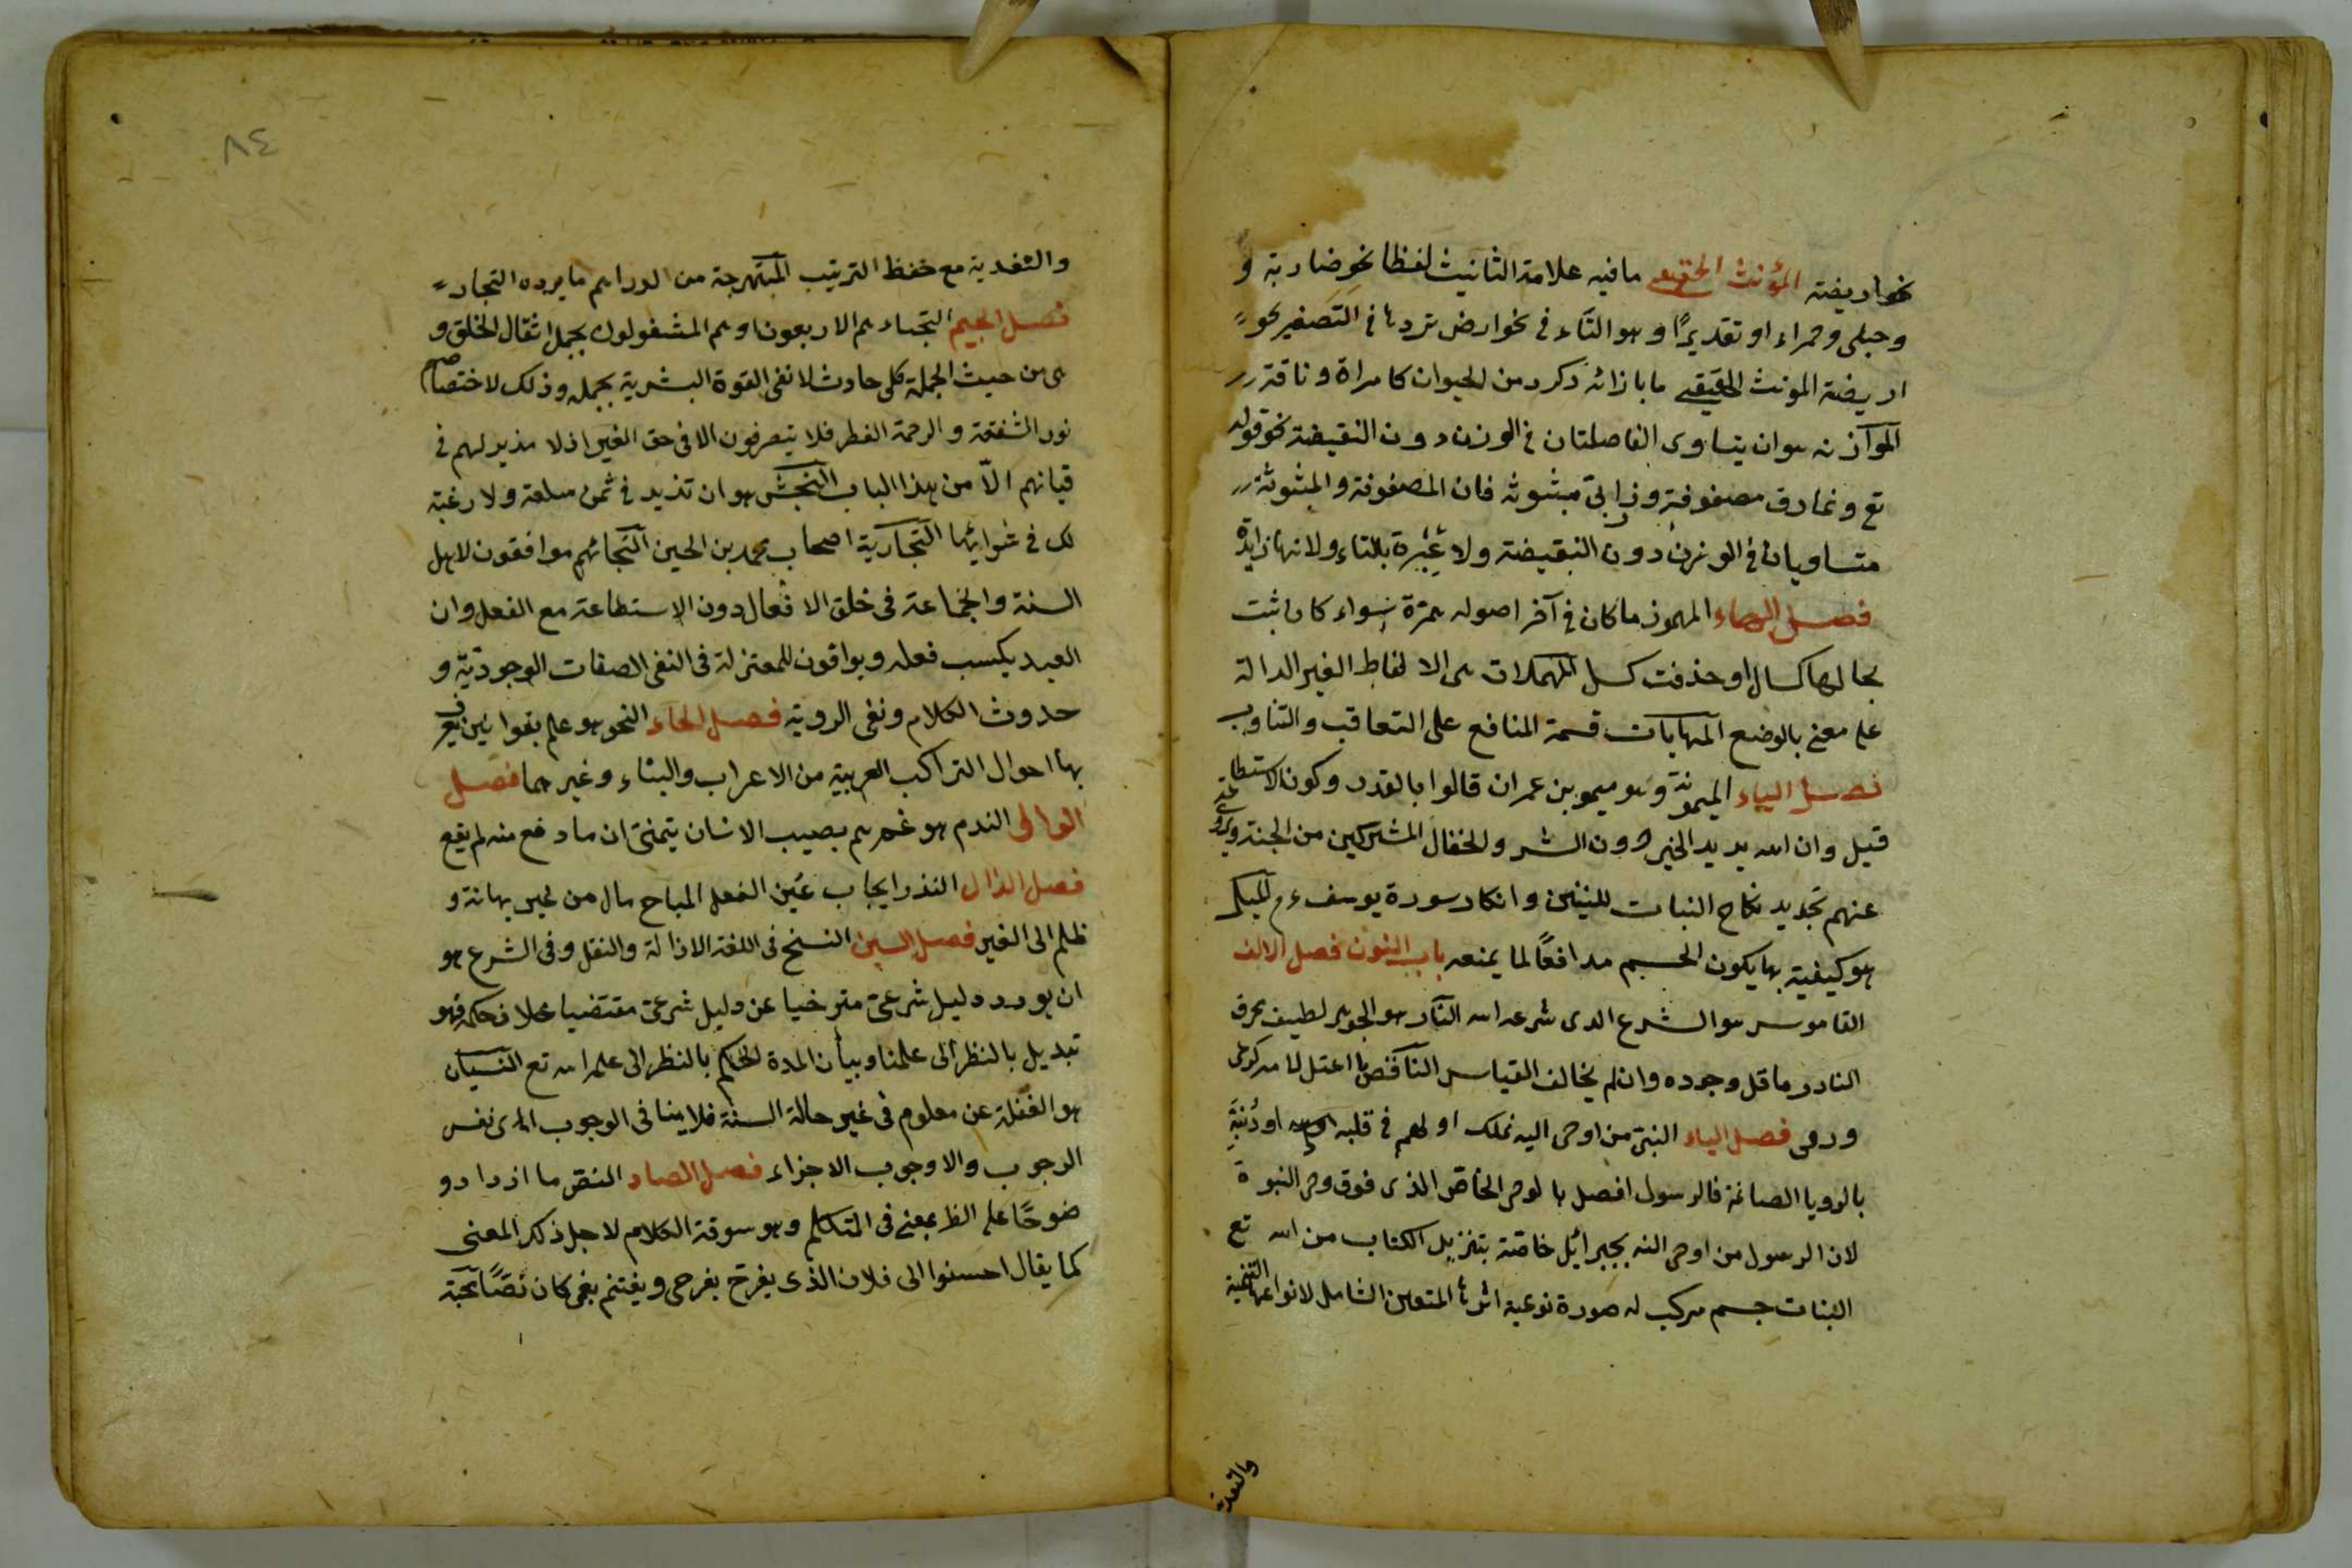 نحو اريضة المؤنث الحقيقى ما فيه علامة التانيث لفظا نحو ضاربة و
وحبلى وحمراء او تقديرًا وهو التاء فى نحو ارض تردها فى التصغير نحو
اريضة المونث الحقيقى ما بازائه ذكر من الحيوان كامراة وناقة
الموازنه هو ان يتساوى الفاصلتان فى الوزن دون التقيضة نحو قوله
تع ونمارق مصفوفة وزرابىّ مبثوثه فان المصفوفة والمبثوثة
متساويان فى الوزن دون التقيضة ولا عبرة بالتاء ولانها زايدة
فصل الهاء المهموز ما كان فى آخر اصوله همزة سواء كان ابثت
بحالها كسال او حذفت كسل المهملات هى الالفاظ الغير الدالة
على معنى بالوضع المهايات قسمة المنافع على التعاقب والتناوب
فصل الياء الميمونة وهو ميمون بن عمران قالوا بالقدر وكون الاستطاعة
قبل وان الله يريد الخير دون الشر والخفال المشركين من الجنة ويروى
عنهم تجديد نكاح البنات للبنين وانكار سورة يوسف ءم الميل
هو كيفية بها يكون الجسم مدافعًا لما يمنعه باب النون فصل الالف
القاموس هو الشرع الذى شرعه الله النار هو الجوهر لطيف محرق
النادر ما قل وجوده وان لم يخالف القياس الناقص ما اعتل لامه كدعى
ورمى فصل الياء النبى من اوحى اليه بملك او الهم فى قلبه او نبّه
بالرويا الصالحة فالرسول افضل بالوحى الخاص الذى فوق وحى النبوة
لان الرسول من اوحى اليه بجبرائيل خاصّة بتنزيل الكتاب من الله تع
النبات جسم مركب له صورة نوعية اثرها المتعين الشامل لانواعها التنمية
والتغذية
٨٤
والتغدية مع حفظ الترتيب المبتهرجة من الدراهم ما يرده التجار
فصل الجيم النجباء هم الاربعون وهم المشغولون بحمل اثقال الخلق و
هى من حيث الجملة كل حادث لا تفى القوة البشرية بحمله وذلك لاختصاصهم
نور الشفقة والرحمة الفطر فلا يتصرفون الا فى حق الغير اذ لا مذيد لهم فى
قيانهم الّا من هذا الباب النجش هو ان تزيد فى ثمن سلعة ولا رغبة
لك فى شرائها النجارية اصحاب محمد بن الحسين النجار هم موافقون لاهل
السنة والجماعة فى خلق الافعال دون الاستطاعة مع الفعل وان
العبد يكسب فعله ويوافقون للمعتزلة فى النفى الصفات الوجودية و
حدوث الكلام ونفى الروية فصل الحاء النحو هو علم بقوانين يعرف
بها احوال التراكب العربية من الاعراب والبناء وغيرهما فصل
الدال الندم هو غم يصيب الانسان يتمنى ان ما وقع منه لم يقع
فصل الذال النذر ايجاب عين الفعل المباح مال من غير بهانة و
ظلم الى الغير فصل السين النسخ فى اللغة الازالة والنقل وفى الشرع هو
ان يورد دليل شرعىّ متراخيا عن دليل شرعى مقتضيا خلاف حكمه فهو
تبديل بالنظر الى علمنا وبيان المدة الحكم بالنظر الى علم الله تع النسيان
هو الغفلة عن معلوم فى غير حالة السنة فلا ينافى الوجوب اى نفس
الوجوب والا وجوب الاجزاء فصل الصاد النص ما ازداد و
ضوحًا على الظ بمعنى فى المتكلم وهو سوقة الكلام لاجل ذلك المعنى
كما يقال احسنوا الى فلان الذى يفرح بفرحى ويغتنم بغمى كان نصًا محبة